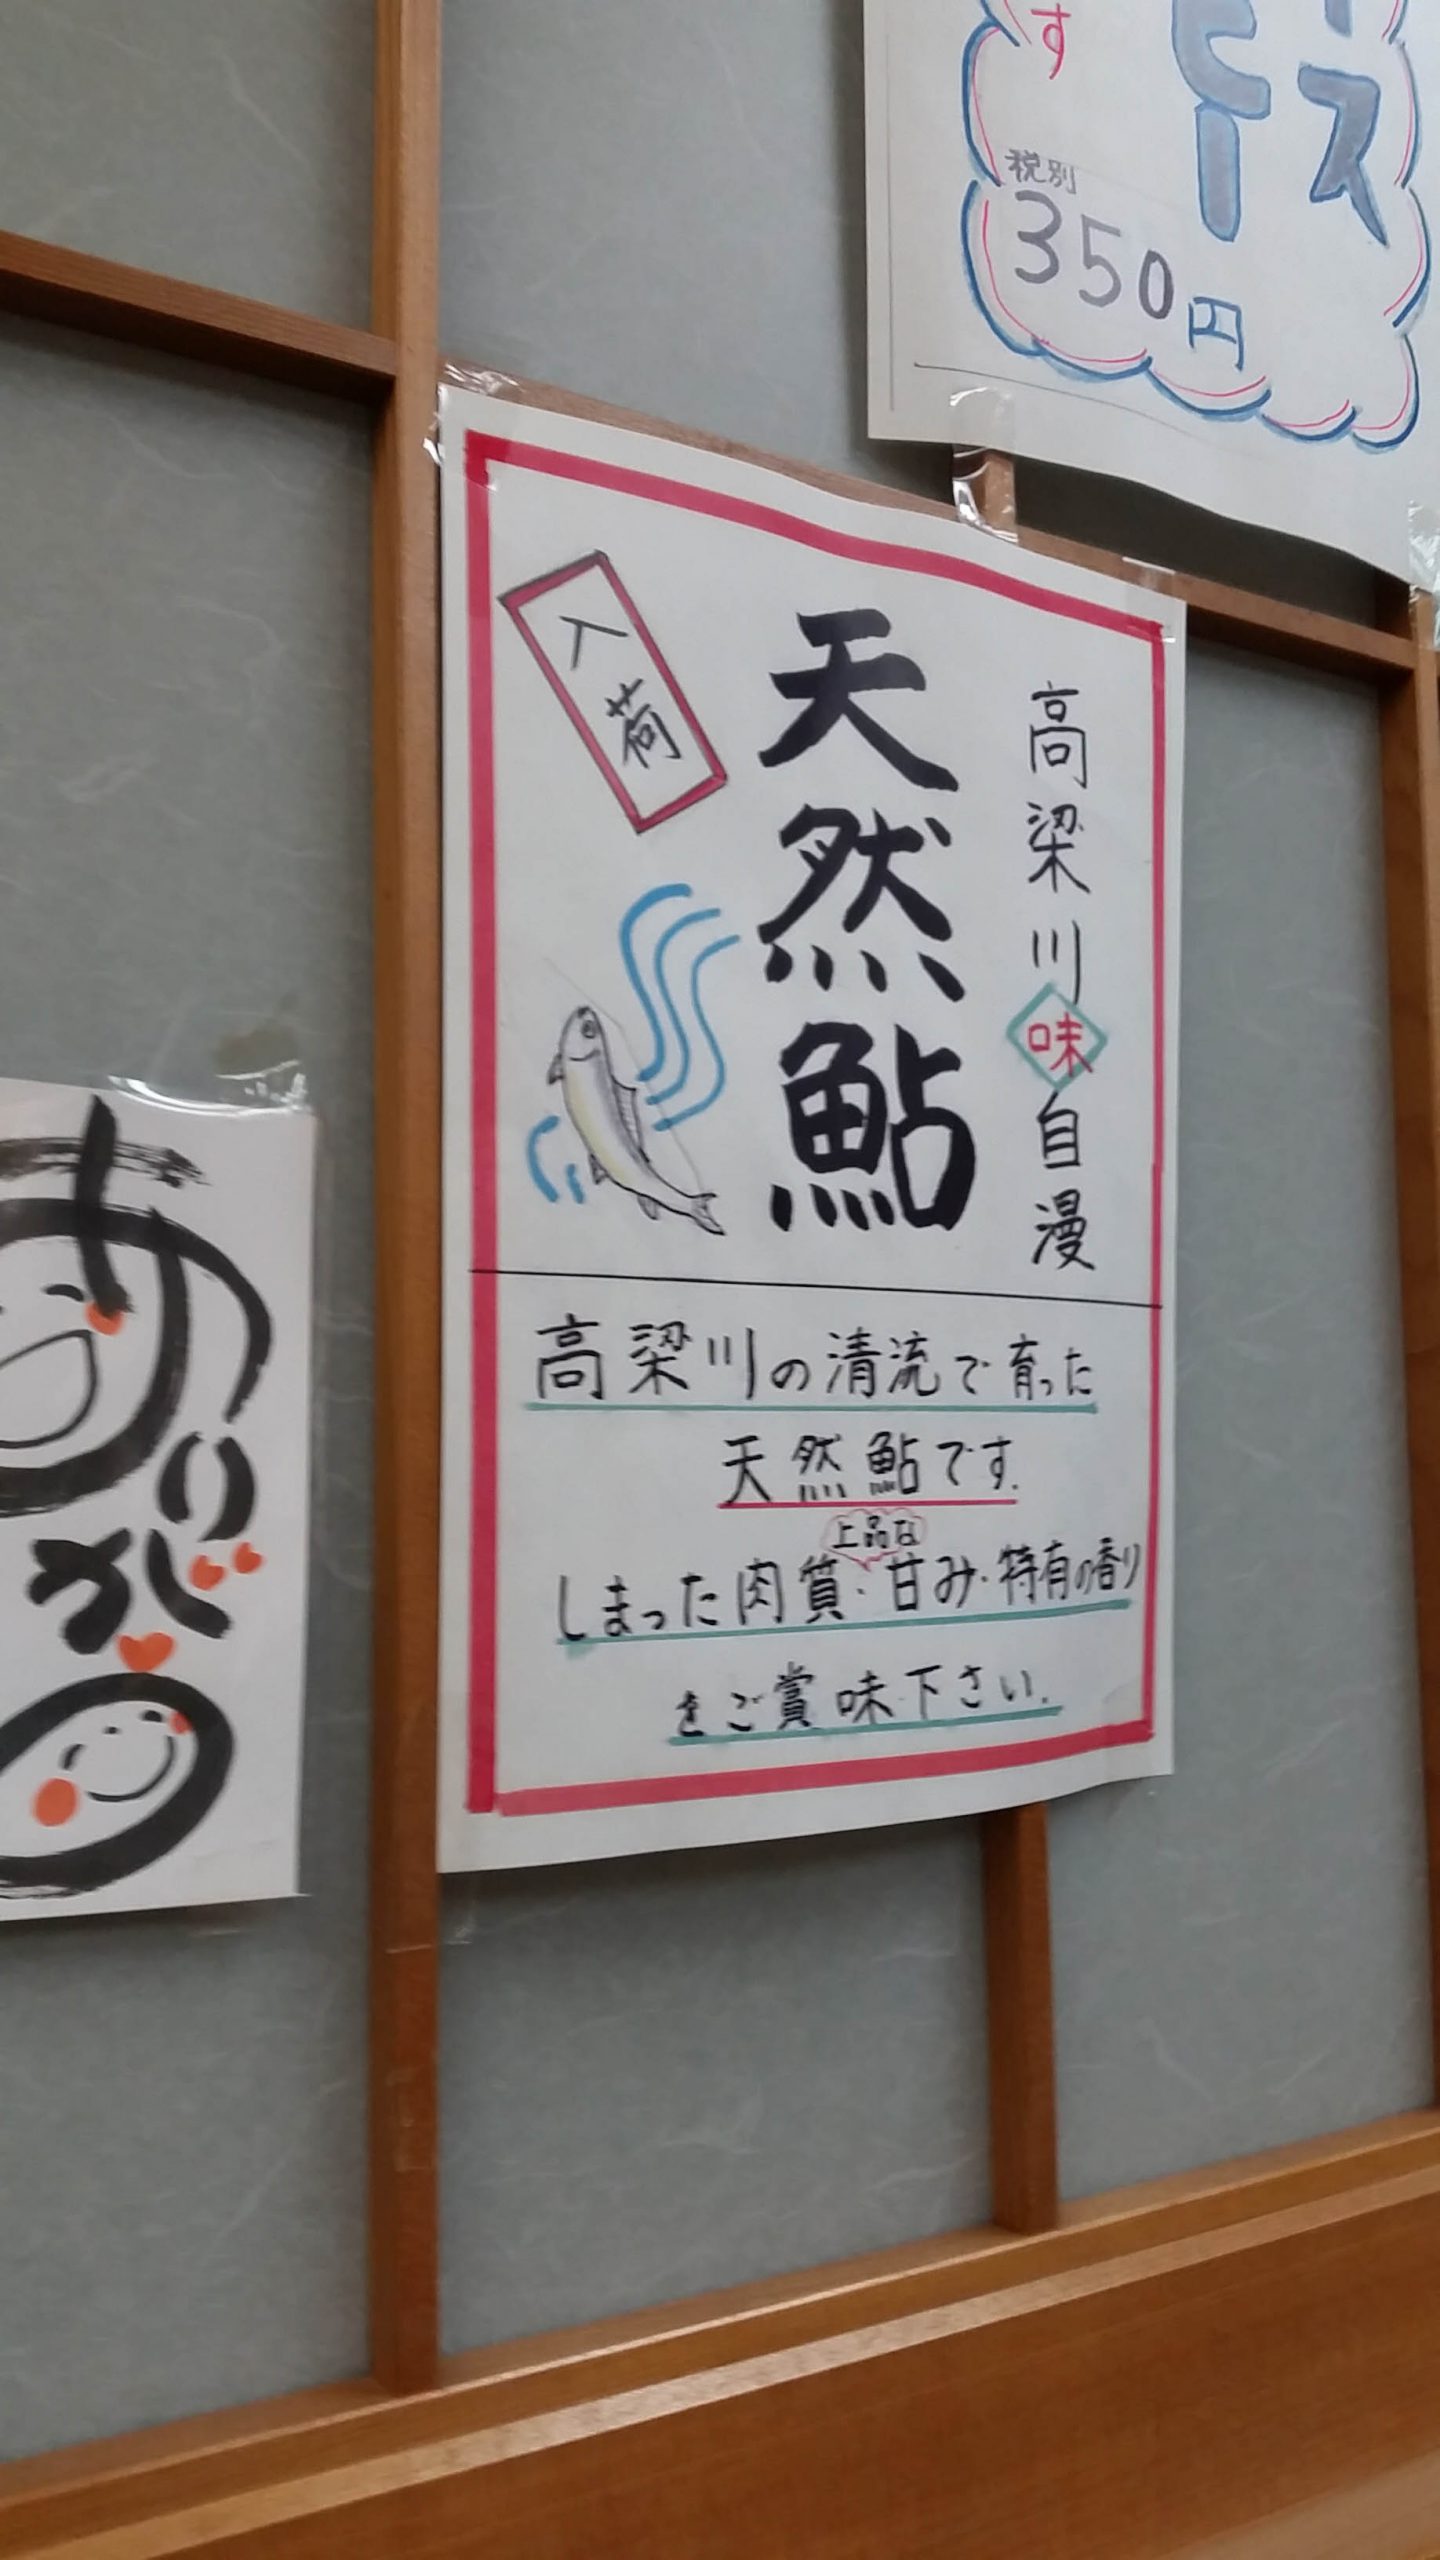 す
税別
350円
高梁川味自漫
天然鮎
入荷
高梁川の清流で育った
天然鮎です.
上品な
しまった肉質・甘み・特有の香り
をご賞味下さい.
ありがと